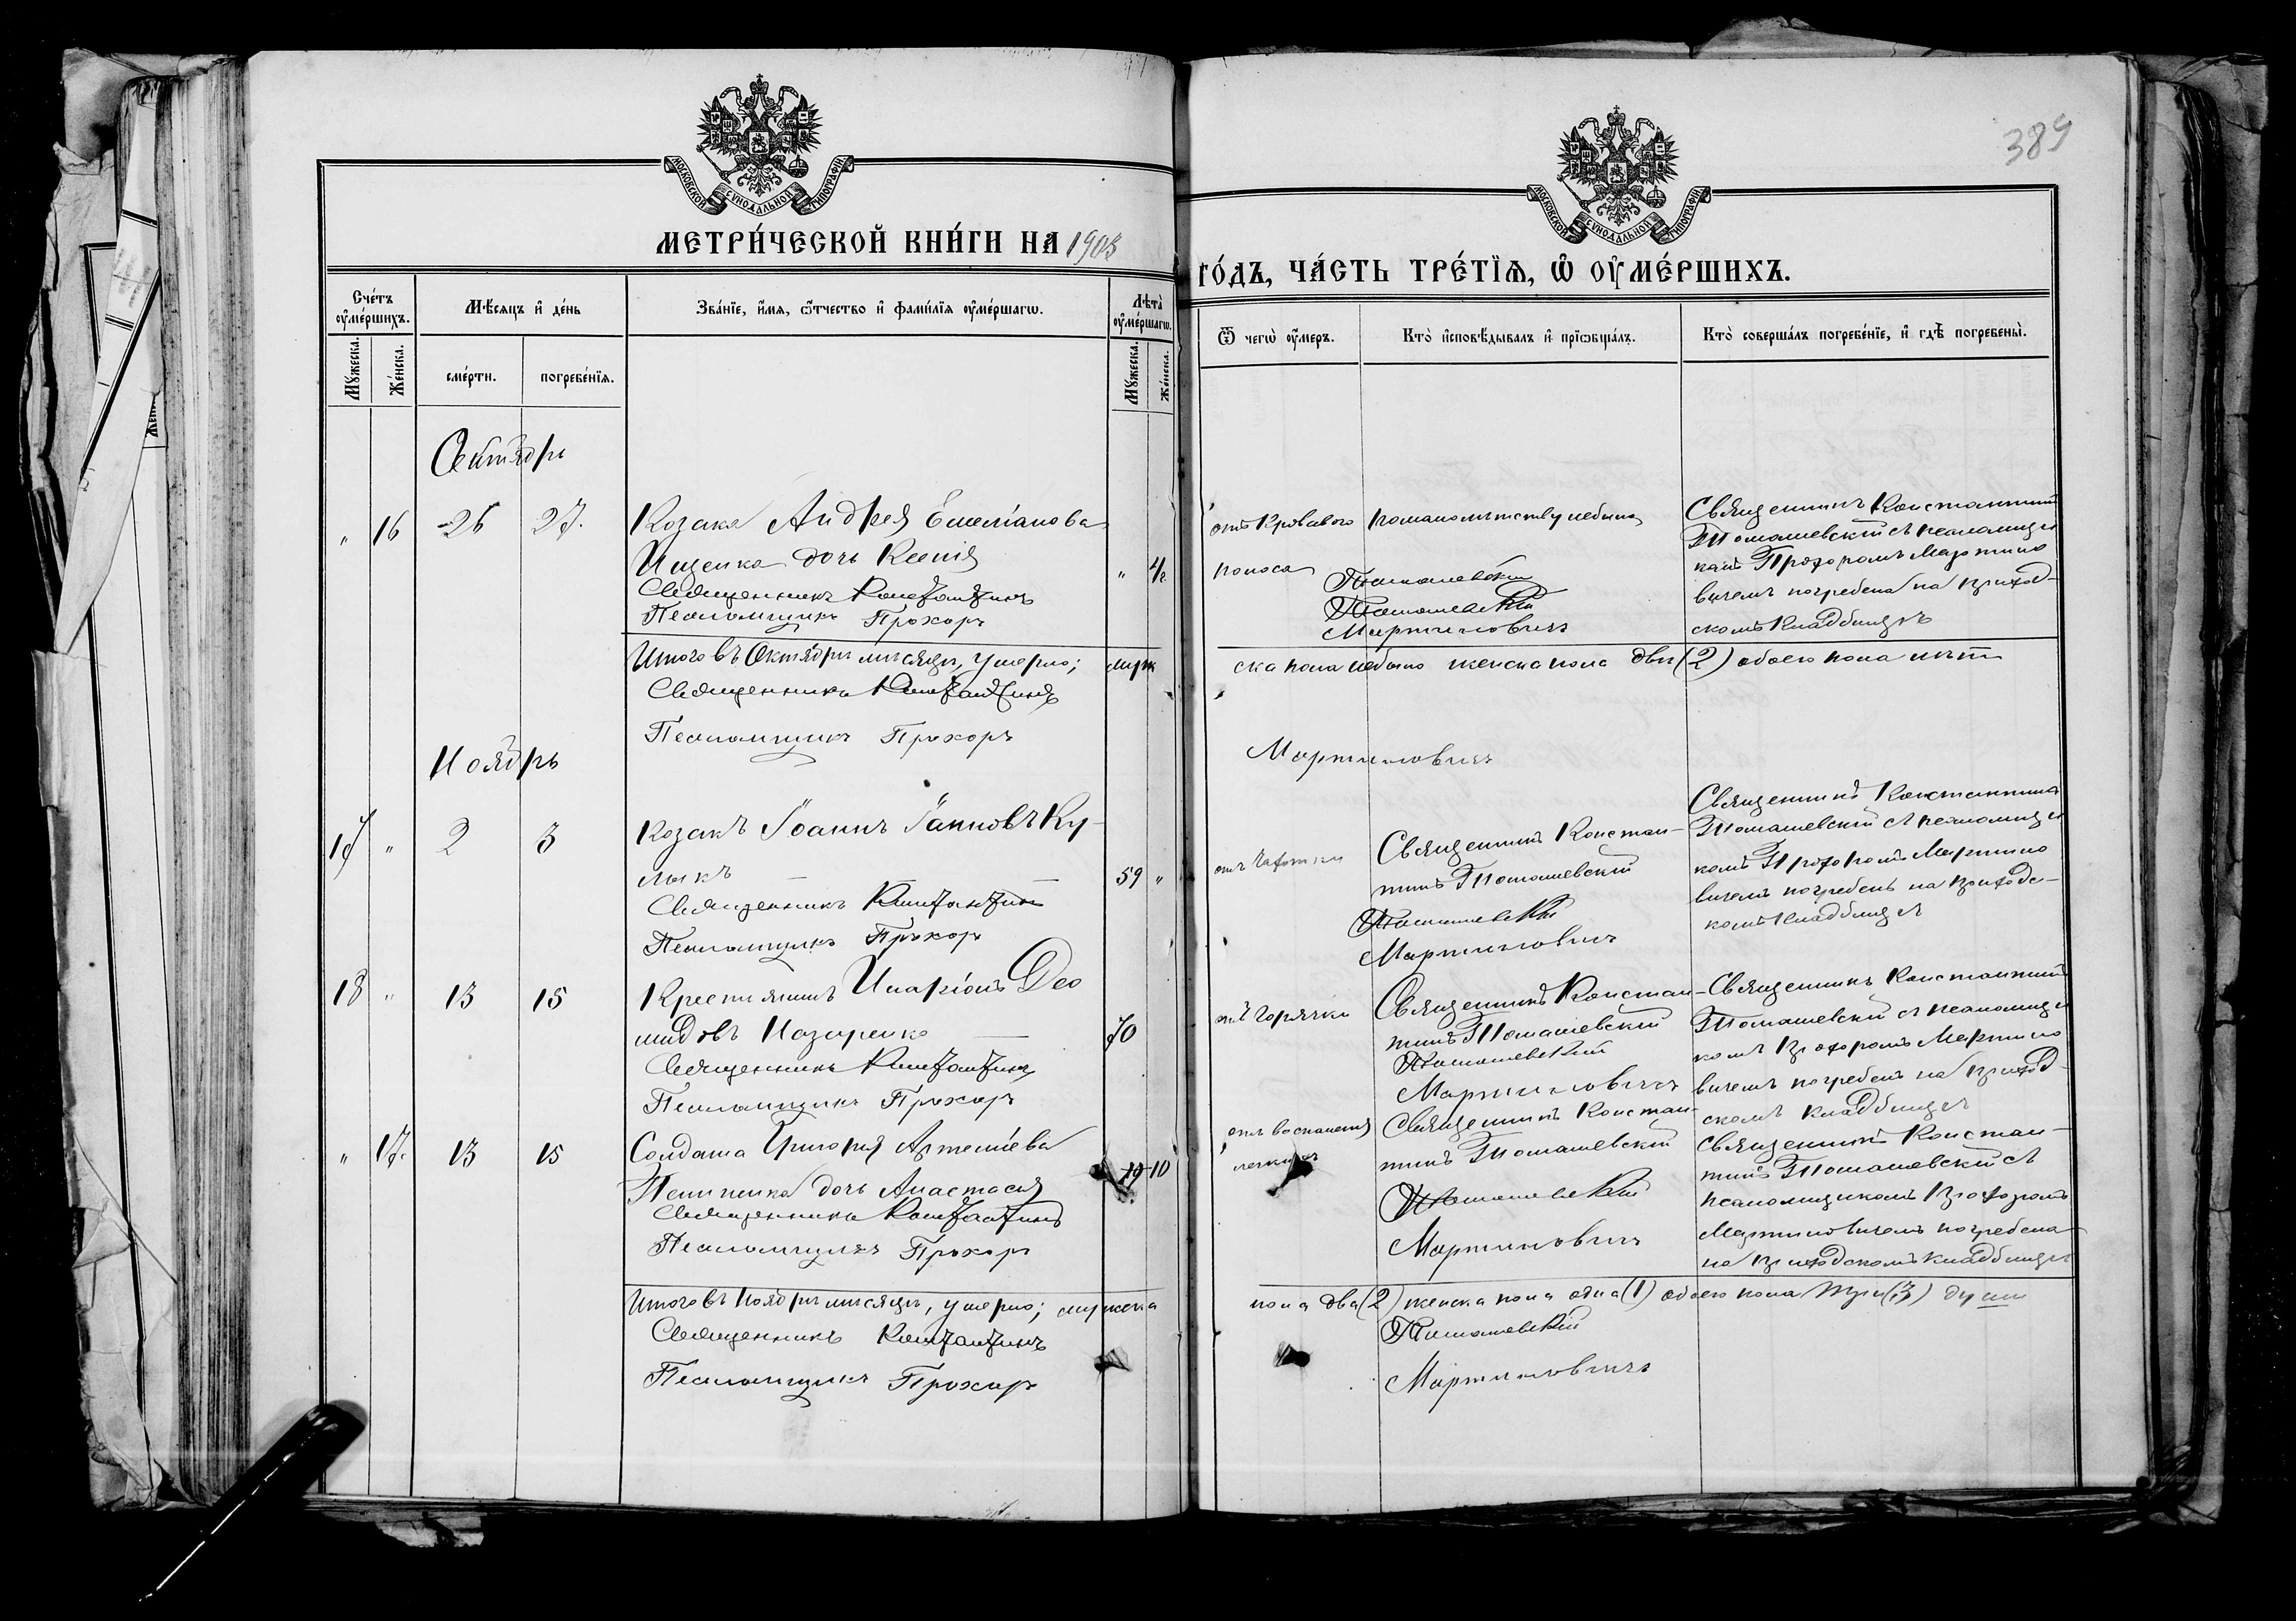 389
МОСКОВСКОЙ СѴНОДАЛЬНОЙ ТИПОГРАФІИ
МОСКОВСКОЙ СѴНОДАЛЬНОЙ ТИПОГРАФІИ
МЕТРИ́ЧЕСКОЙ КНИ́ГИ НА 1903
ГО́ДЪ, ЧА́СТЬ ТРЕ́ТЇѦ, Ѽ ОУ҆МЕ́РШИХЪ.
Сче́тъ оу҆ме́ршихъ.
Мꙋ́жеска.
Же́нска.
Мѣ́сяцъ и҆ де́нь
сме́рти.
погребе́нїя.
Зва́нїе, и҆́мя, ѻ҆́тчество и҆ фами́лїя оу҆ме́ршагѡ.
Лѣ̑та̀ оу҆ме́ршагѡ.
Мꙋ́жеска.
Же́нска.
Ѿ чегѡ̀ оу҆́меръ.
Кто̀ и҆сповѣ́дывалъ и҆ прїѡбща́лъ.
Кто̀ соверша́лъ погребе́нїе, и҆ гдѣ̀ погребены̀.
Октябрь
" 16 26 27.
Козака Андрея Емеліанова
Ищенка дочь Ксенія
Священникъ Константинъ
Псаломщикъ Прохоръ
" 4
отъ Кроваваго
поноса
по малолѣтству небыла
Томашевскій
Томашевскій
Мартиновичъ
Священникъ Константинъ
Томашевскій съ псаломщи
комъ Прохоромъ Мартино
вичемъ погребена на приход-
скомъ Кладбищѣ
Итого въ Октябрѣ мѣсяцѣ, умерло; муж
ска пола небыло женска пола двѣ (2) обоего пола
Священникъ Константинъ
Псаломщикъ Прохоръ
Мартиновичъ
Ноябрь
17 " 2 3
Козакъ Іоаннъ Іаковъ Ку-
лыкъ
Священникъ Константинъ
Псаломщикъ Прохоръ
59 "
отъ Чахотки
Священникъ Констан-
тинъ Томашевскій
Томашевскій
Мартиновичъ
Священникъ Константинъ
Томашевскій съ псаломщи
комъ Прохоромъ Мартино
вичемъ погребенъ на приходс-
комъ Кладбищѣ
18 " 13 15
Крестьянинъ Иларіонъ Део
мидовъ Назаренко
Священникъ Константинъ
Псаломщикъ Прохоръ
70
отъ Горячки
Священникъ Констан-
тинъ Томашевскій
Томашевскій
Мартиновичъ
Священникъ Константинъ
Томашевскій съ псаломщи
комъ Прохоромъ Мартино
вичемъ погребенъ на приход-
скомъ кладбищѣ
" 17. 13 15
Солдата Григорія Артеміева
дочь Анастасія
Священникъ Константинъ
Псаломщикъ Прохоръ
10
отъ воспаленія
легкихъ
Священникъ Констан-
тинъ Томашевскій
Томашевскій
Мартиновичъ
Священникъ Констан-
тинъ Томашевскій съ
псаломщикомъ Прохоромъ
Мартиновичемъ погребена
на приходскомъ кладбищѣ
Итого въ Ноябрѣ мѣсяцѣ, умерло; мужеска
пола два (2) женска пола одна (1) обоего пола три (3) души
Священникъ Константинъ
Томашевскій
Псаломщикъ Прохоръ
Мартиновичъ